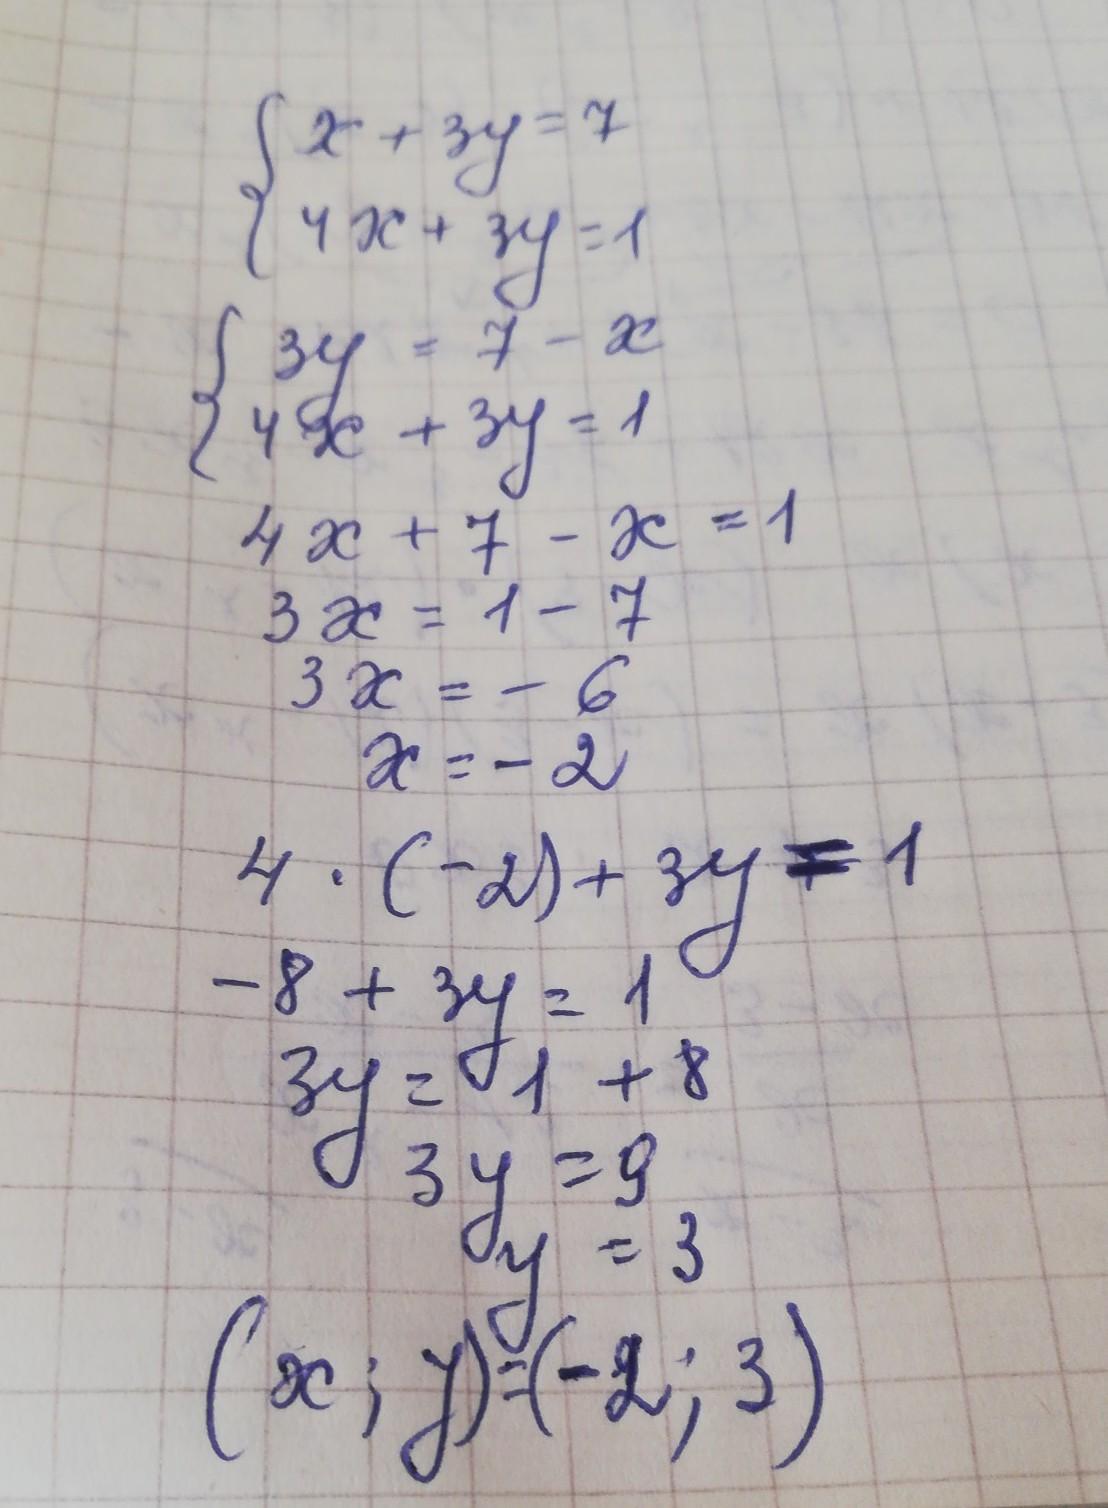 { x + 3y = 7
4x + 3y = 1
{ 3y = 7 - x
4x + 3y = 1
4x + 7 - x = 1
3x = 1 - 7
3x = - 6
x = - 2
4 · (-2) + 3y = 1
-8 + 3y = 1
3y = 1 + 8
3y = 9
y = 3
(x; y) = (-2; 3)